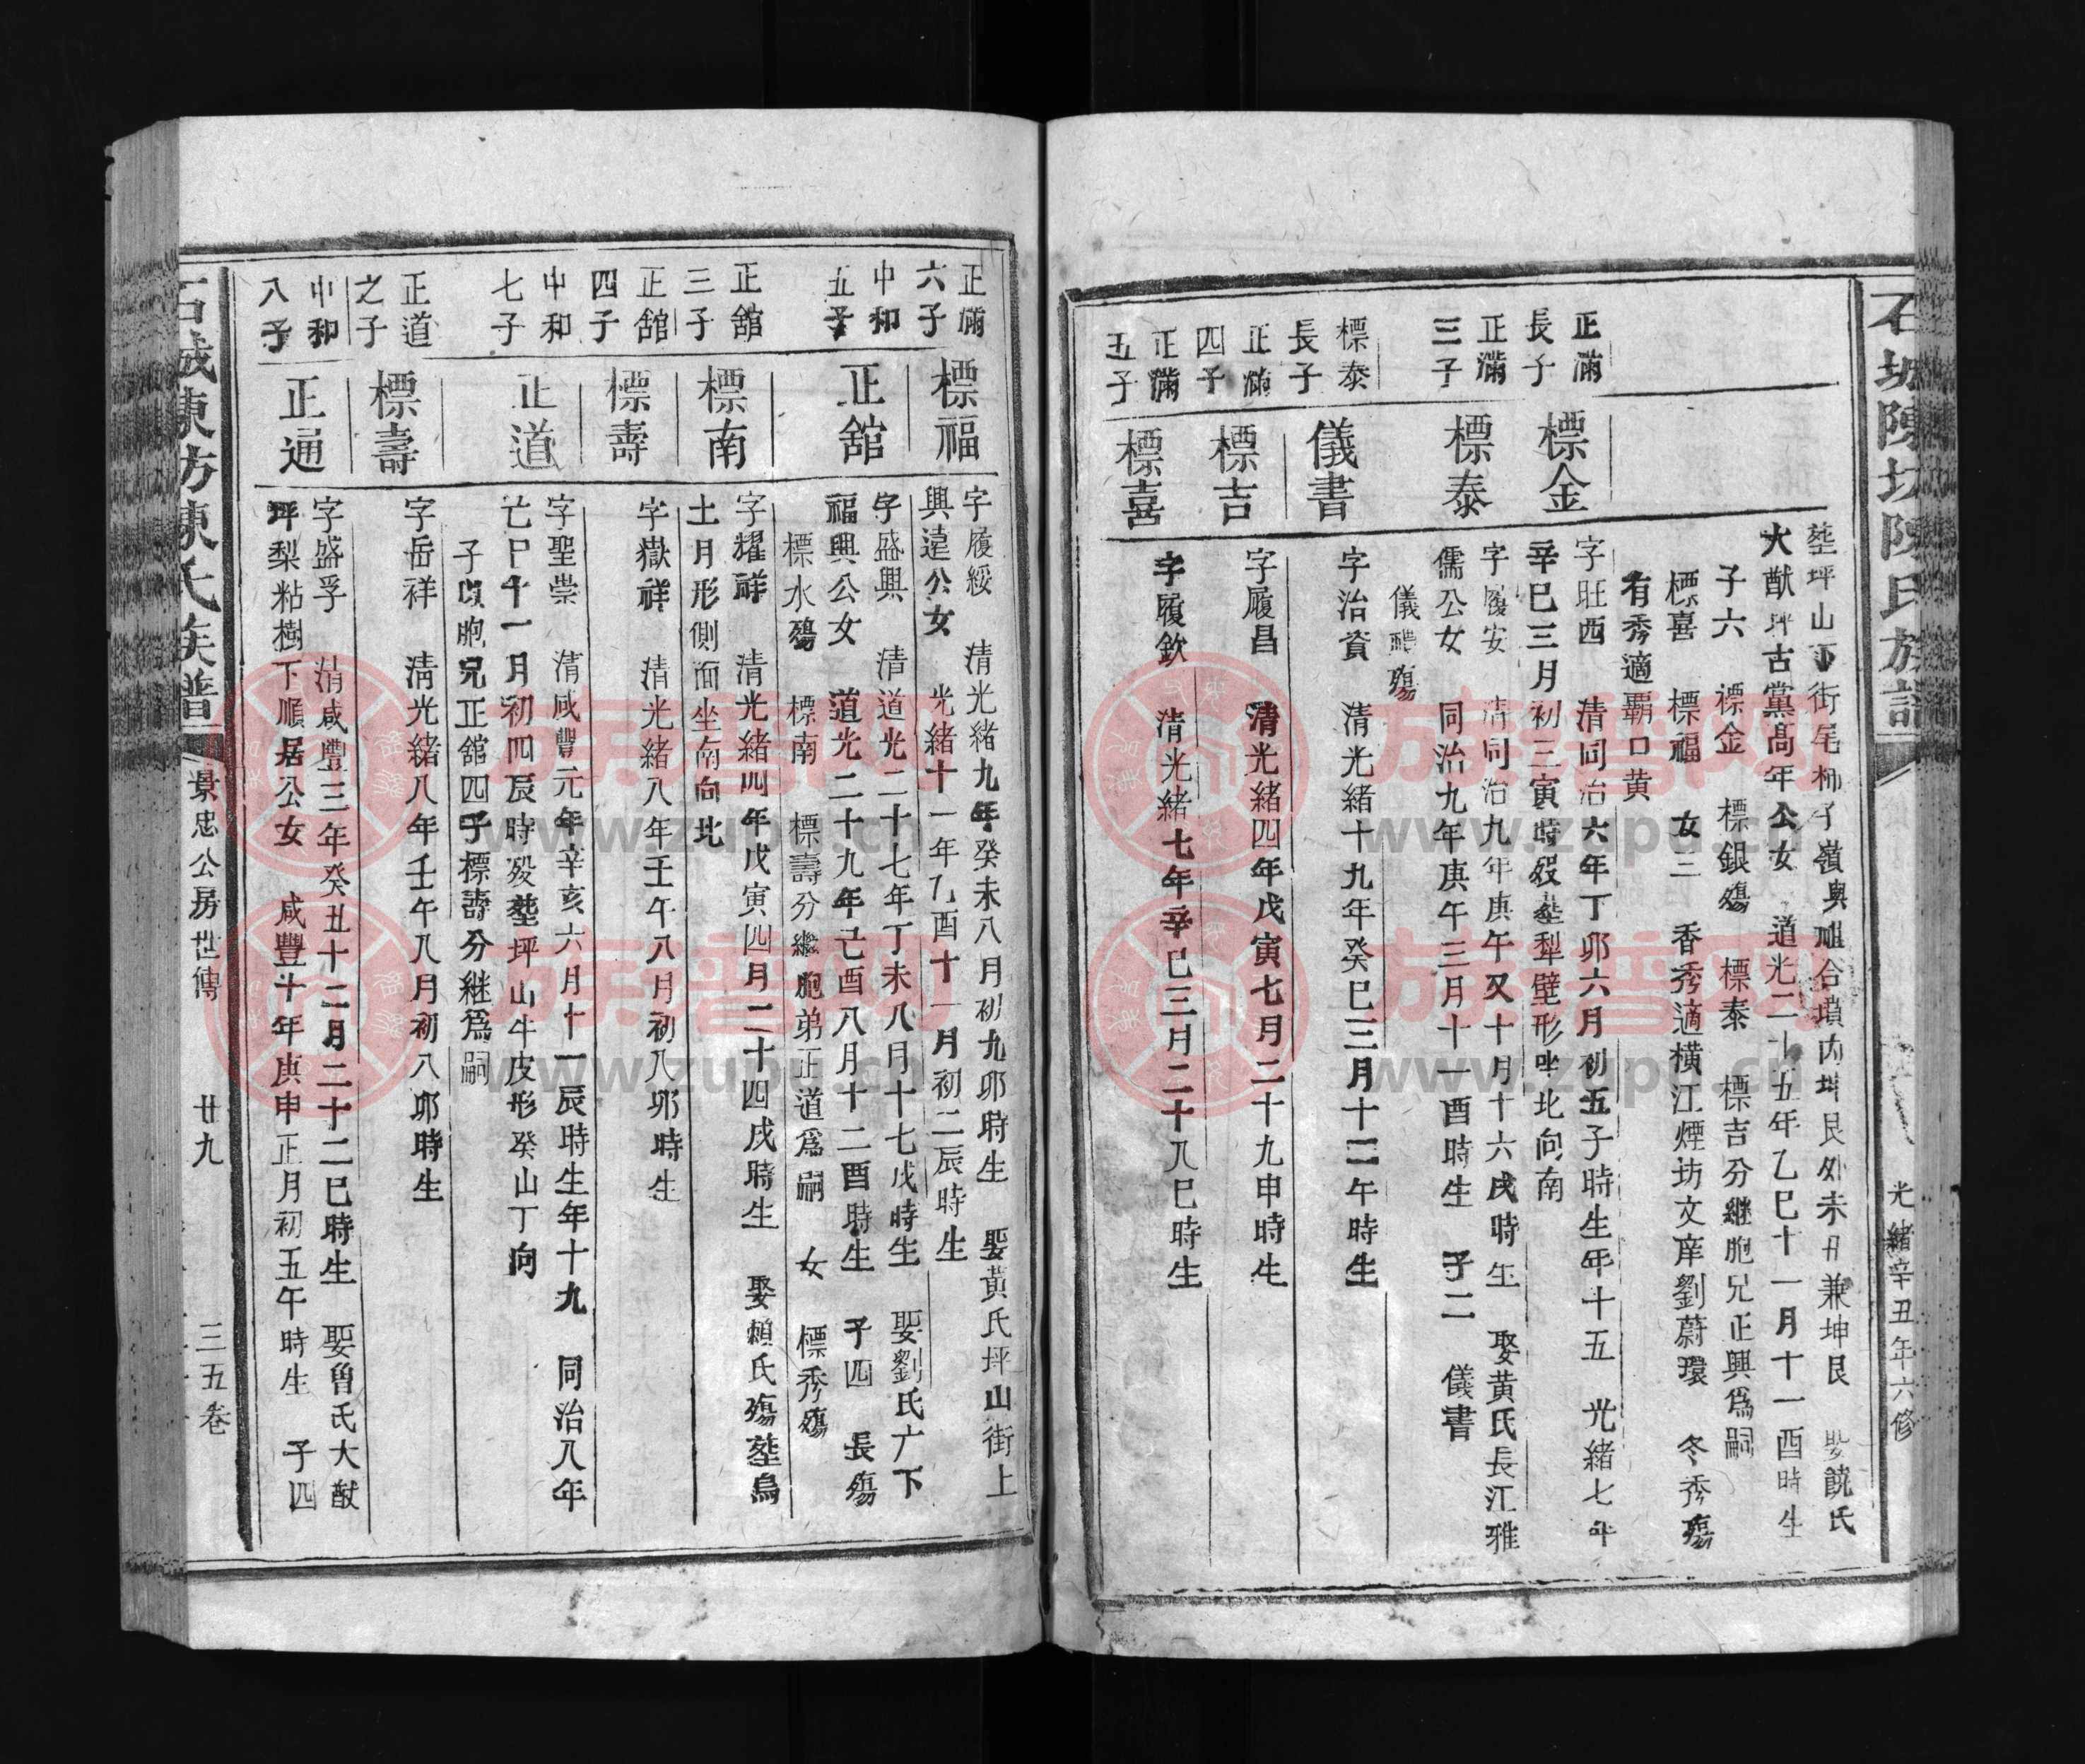 石城陳坊陳氏族譜
光緒辛丑年六修
塟坪山下街尾柿子嶺與祖合墳內坤艮外未丑兼坤艮 娶饒氏
大猷坪古黨高年公女 道光二十五年乙巳十一月十一酉時生
子六 標金 標銀殤 標泰 標吉分継胞兄正興爲嗣
標喜 標福 女三 香秀適橫江煙坊文庠劉蔚環 冬秀殤
有秀適覇口黄
正滿
長子
標金
字旺西 清同治六年丁卯六月初五子時生年十五 光緒七年
辛巳三月初三寅時殁塟犁壁形坐北向南
正滿
三子
標泰
字履安 清同治九年庚午又十月十六戌時生 娶黄氏長江雅
儒公女 同治九年庚午三月十一酉時生 子二 儀書
儀 殤
標泰
長子
儀書
字治資 清光緒十九年癸巳三月十二午時生
正滿
四子
標吉
字履昌 清光緒四年戊寅七月二十九申時生
正滿
五子
標喜
字履欽 清光緒七年辛巳三月二十八巳時生
正滿
六子
標福
字履綏 清光緒九年癸未八月初九卯時生 娶黄氏坪山街上
興達公女 光緒十一年乙酉十一月初二辰時生
中和
五子
正舘
字盛興 清道光二十七年丁未八月十七戌時生 娶劉氏广下
福興公女 道光二十九年己酉八月十二酉時生 子四 長殤
標水殤 標南 標壽分繼胞弟正道爲嗣 女 標秀殤
正舘
三子
標南
字耀祥 清光緒四年戊寅四月二十四戌時生 娶賴氏殤塟烏
土月形側面坐南向北
正舘
四子
標壽
字嶽祥 清光緒八年壬午八月初八卯時生
中和
七子
正道
字聖崇 清咸豐元年辛亥六月十一辰時生年十九 同治八年
己巳十一月初四辰時殁塟坪山牛皮形癸山丁向
子以胞兄正舘四子標壽分継爲嗣
正道
之子
標壽
字岳祥 清光緒八年壬午八月初八卯時生
中和
八子
正通
字盛孚 清咸豐三年癸丑十二月二十二巳時生 娶曾氏大猷
坪梨粘樹下順居公女 咸豐十年庚申正月初五午時生 子四
石城陳坊陳氏族譜
景忠公房世傳
廿九
三五卷
族譜网
www.zupu.cn
族譜网
www.zupu.cn
族譜网
www.zupu.cn
族譜网
www.zupu.cn